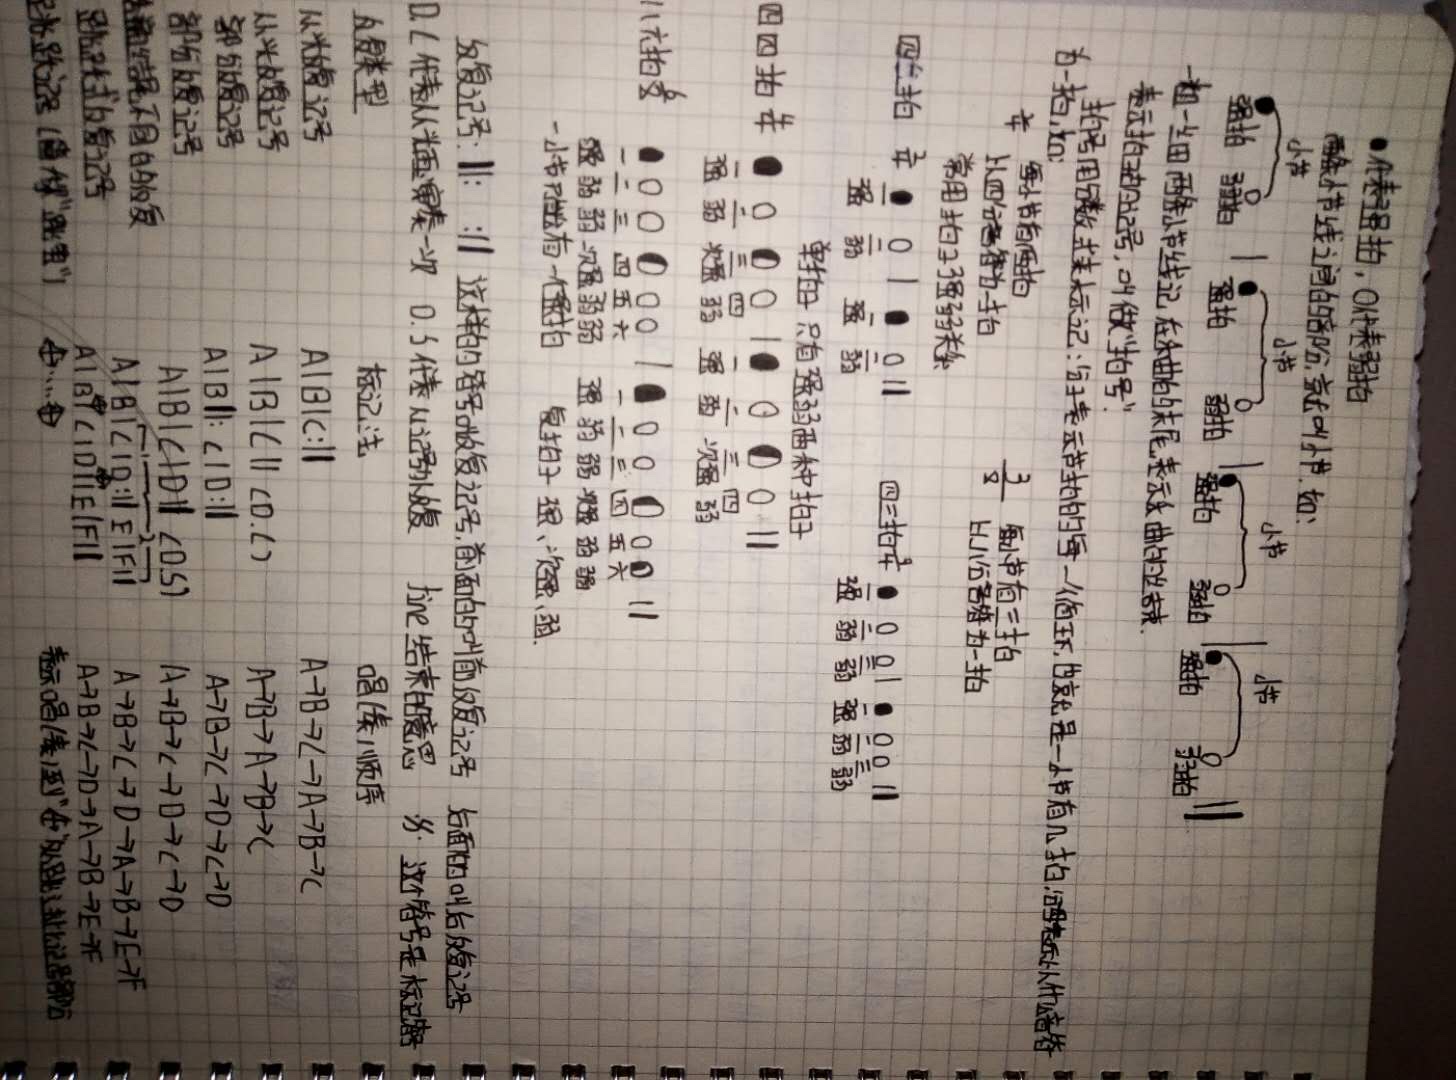 ●代表强拍，○代表弱拍
两条小节线之间的部分，就叫小节. 如：
小节 小节 小节 小节
● ○ | ● ○ | ● ○ | ● ○ ‖
强拍 弱拍 强拍 弱拍 强拍 弱拍 强拍 弱拍
一粗一细两条小节线记在乐曲的末尾表示乐曲的结束.
表示拍子的记号，叫做"拍号".
拍号用分数式来标记：分子表示节拍的每一个循环，也就是一小节有几拍，分母表示以什么音符
为一拍，如：
2/4 每小节有两拍 3/8 每小节有三拍
以四分音符为一拍 以八分音符为一拍
常用拍子强弱关系
四二拍 2/4 ● ○ | ● ○ ‖ 四三拍 3/4 ● ○ ○ | ● ○ ○ ‖
一 二 一 二 一 二 三 一 二 三
强 弱 强 弱 强 弱 弱 强 弱 弱
单拍子 只有强弱两种拍子
四四拍 4/4 ● ○ ● ○ | ● ○ ● ○ ‖
一 二 三 四 一 二 三 四
强 弱 次强 弱 强 弱 次强 弱
八六拍 6/8 ● ○ ○ ● ○ ○ | ● ○ ○ ● ○ ○ ‖
一 二 三 四 五 六 一 二 三 四 五 六
强 弱 弱 次强 弱 弱 强 弱 弱 次强 弱 弱
一小节 有一个强拍 复拍子 强、次强、弱.
反复记号：‖: :‖ 这样的符号叫反复记号，前面的叫前反复记号 后面的叫后反复记号
D.C 代表从头再演奏一次 D.S 代表从记号处反复 fine 结束的意思 𝄋 这个符号是标记
反复类型 标记法 唱（奏）顺序
从头反复记号 A|B|C:‖ A→B→C→A→B→C
从头反复记号 A|B|C‖ (D.C) A→B→A→B→C
部分反复记号 A|B‖: C|D:‖ A→B→C→D→C→D
部分反复记号 A|B|C|D‖ (D.S) A→B→C→D→C→D
结尾不同的反复 A|B|C|D:‖E|F‖ A→B→C→D→A→B→E→F
跳越式反复记号 A|B|C|D‖E|F‖ A→B→C→D→A→B→E→F